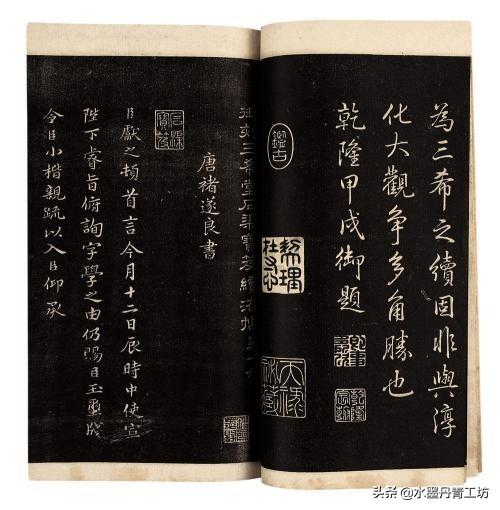 為三希之續固非與淳
化大觀爭多角勝也
乾隆甲戌御題
鑑古
御刻三希堂石渠寶笈續法帖第一
唐褚遂良書
石渠寶笈
臣獻之頓首言今月十二日辰時中使宣
陛下睿旨俯詢字學之由仍賜臣玉璽牋
令臣小楷親疏以入臣仰承
头条 @水墨丹青工坊